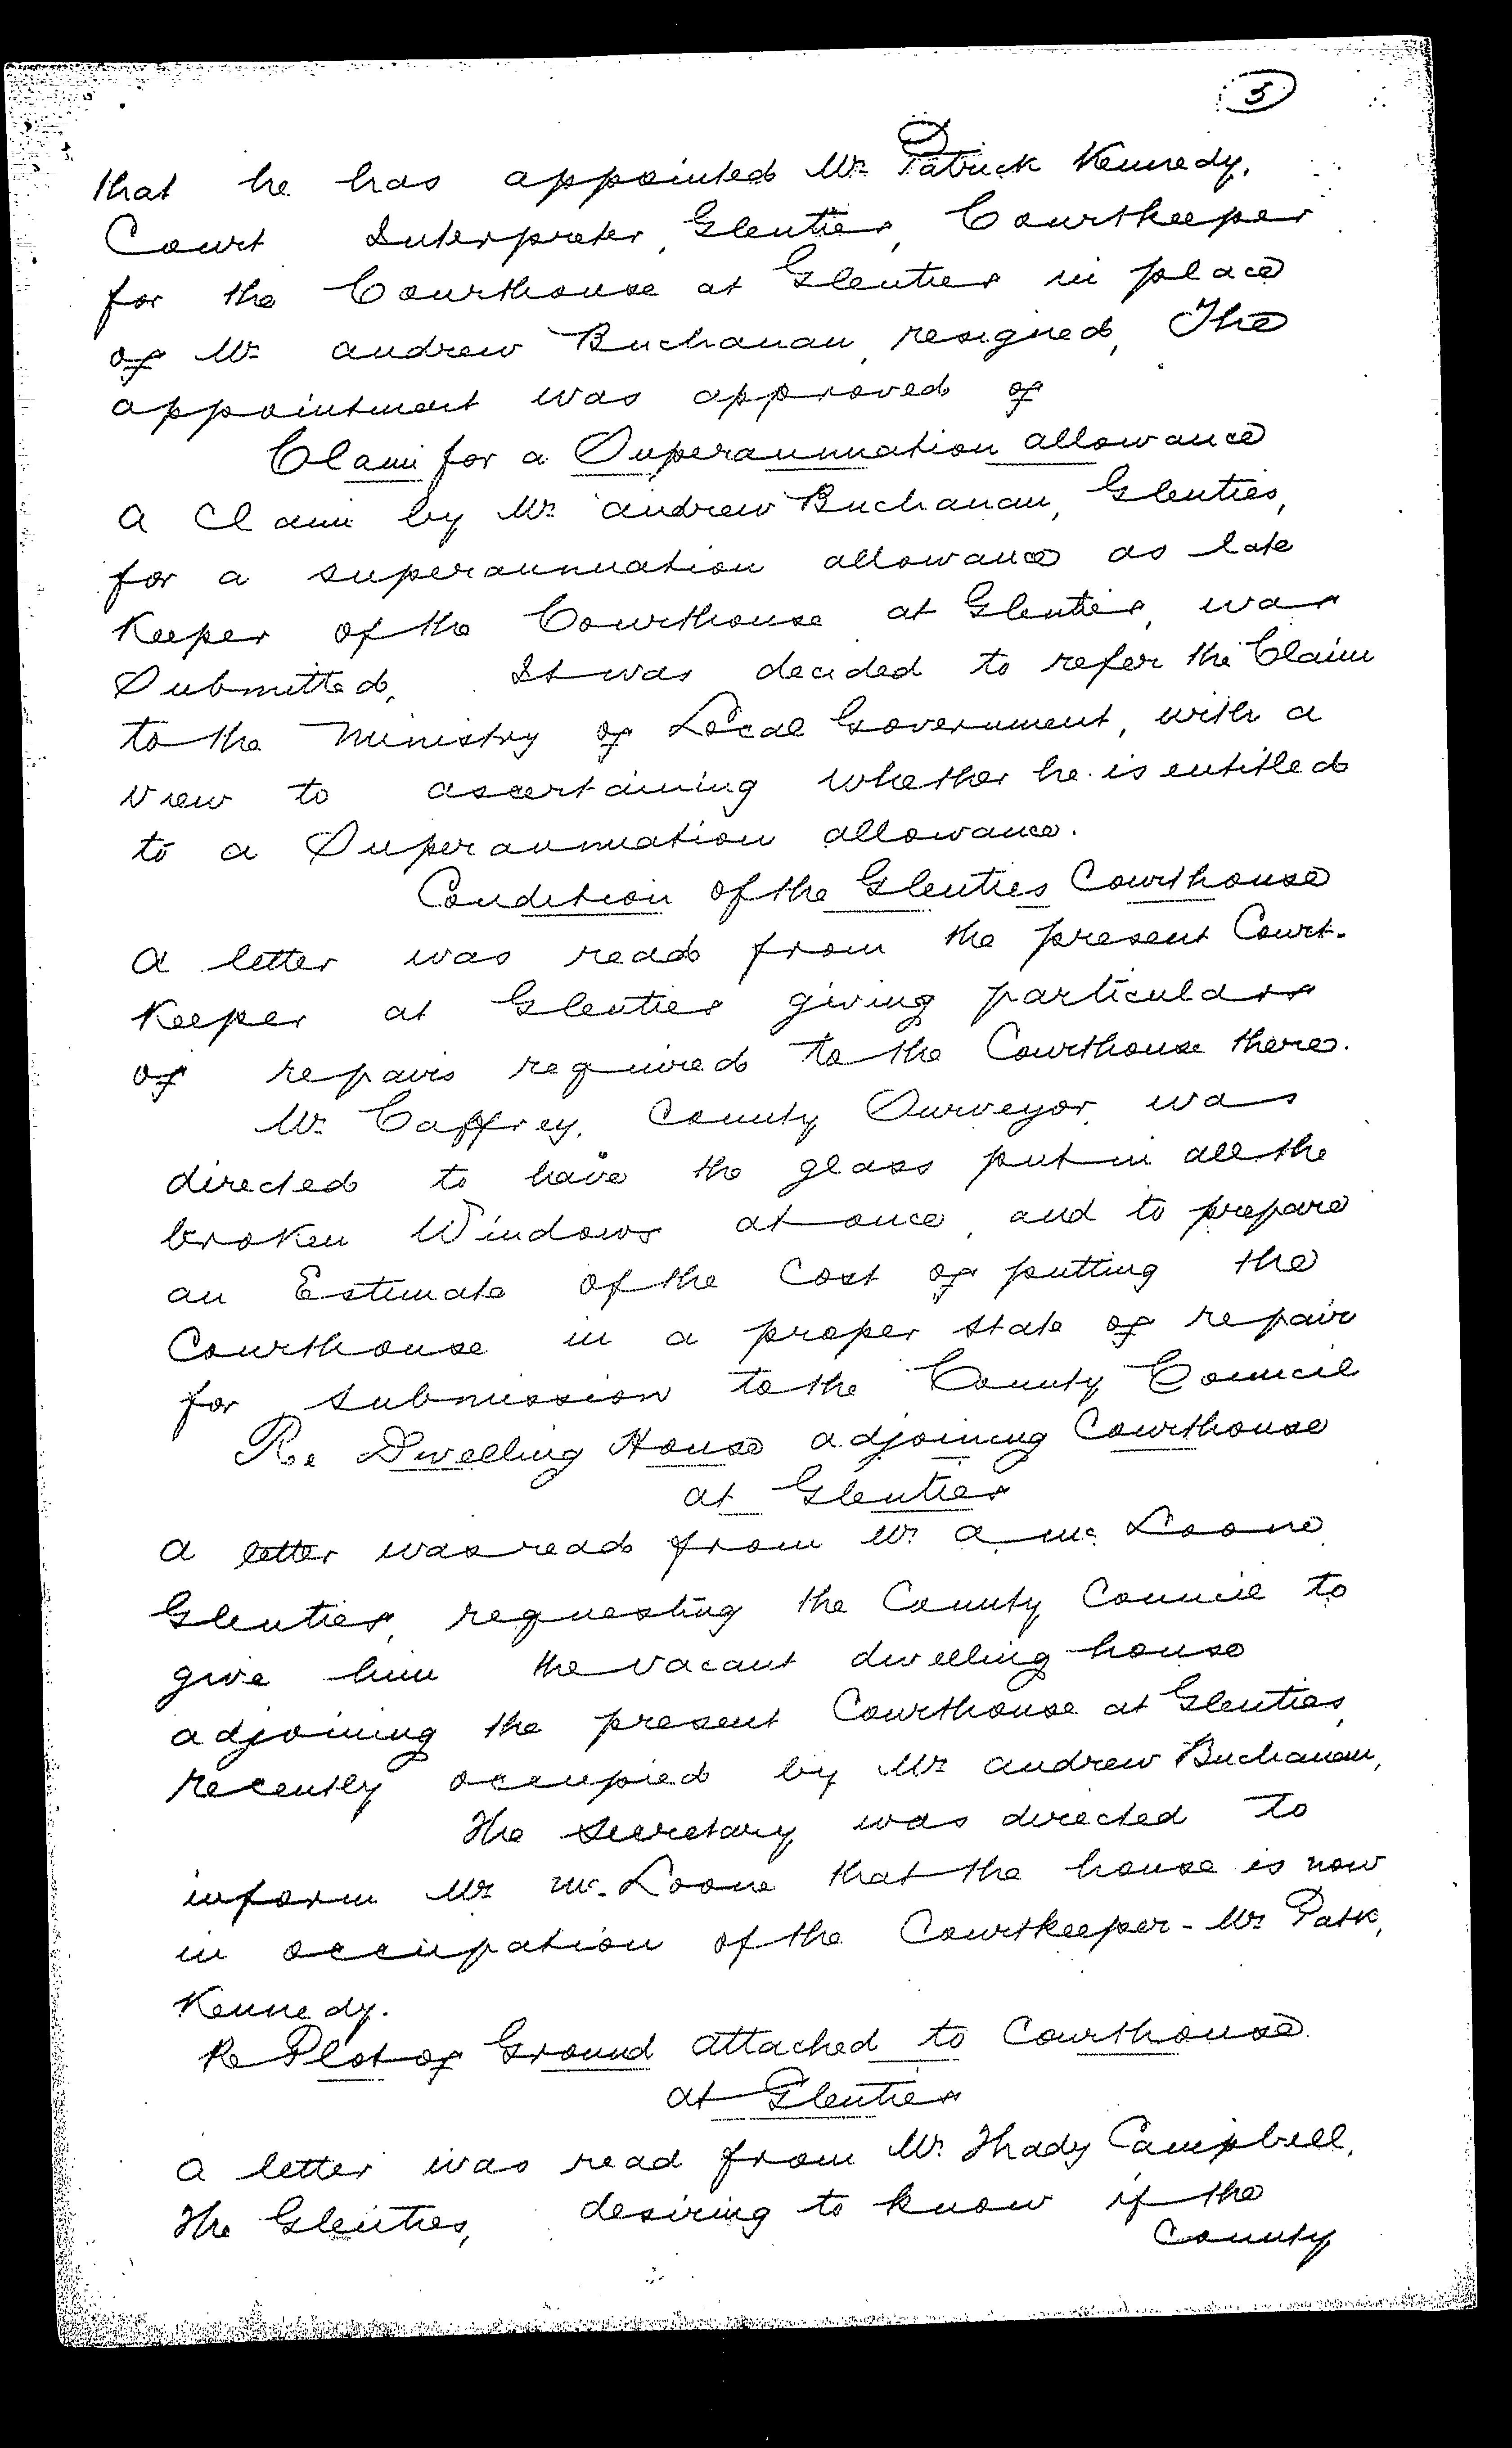 5
that he has appointed Mr Patrick Kennedy,
Court Interpreter, Glenties, Courtkeeper
for the Courthouse at Glenties in place
of Mr Andrew Buchanan, resigned, The
appointment was approved of
Claim for a Superannuation allowance
A Claim by Mr Andrew Buchanan, Glenties,
for a superannuation allowance as late
Keeper of the Courthouse at Glenties, was
Submitted, It was decided to refer the Claim
to the Ministry of Local Government, with a
view to ascertaining whether he is entitled
to a Superannuation allowance.
Condition of the Glenties Courthouse
A letter was read from the present Court-
Keeper at Glenties giving particulars
of repairs required to the Courthouse there.
Mr Caffrey, County Surveyor, was
directed to have the glass put in all the
broken Windows at once, and to prepare
an Estimate of the Cost of putting the
Courthouse in a proper state of repair
for submission to the County Council
Re Dwelling House adjoining Courthouse
at Glenties
A letter was read from Mr A. Mc. Loone
Glenties, requesting the County Council to
give him the vacant dwelling house
adjoining the present Courthouse at Glenties,
recently occupied by Mr Andrew Buchanan,
The Secretary was directed to
inform Mr Mc. Loone that the house is now
in occupation of the Courtkeeper - Mr Patk,
Kennedy.
Re Plot of Ground attached to Courthouse.
at Glenties
A letter was read from Mr Thady Campbell,
The Glenties, desiring to know if the
County